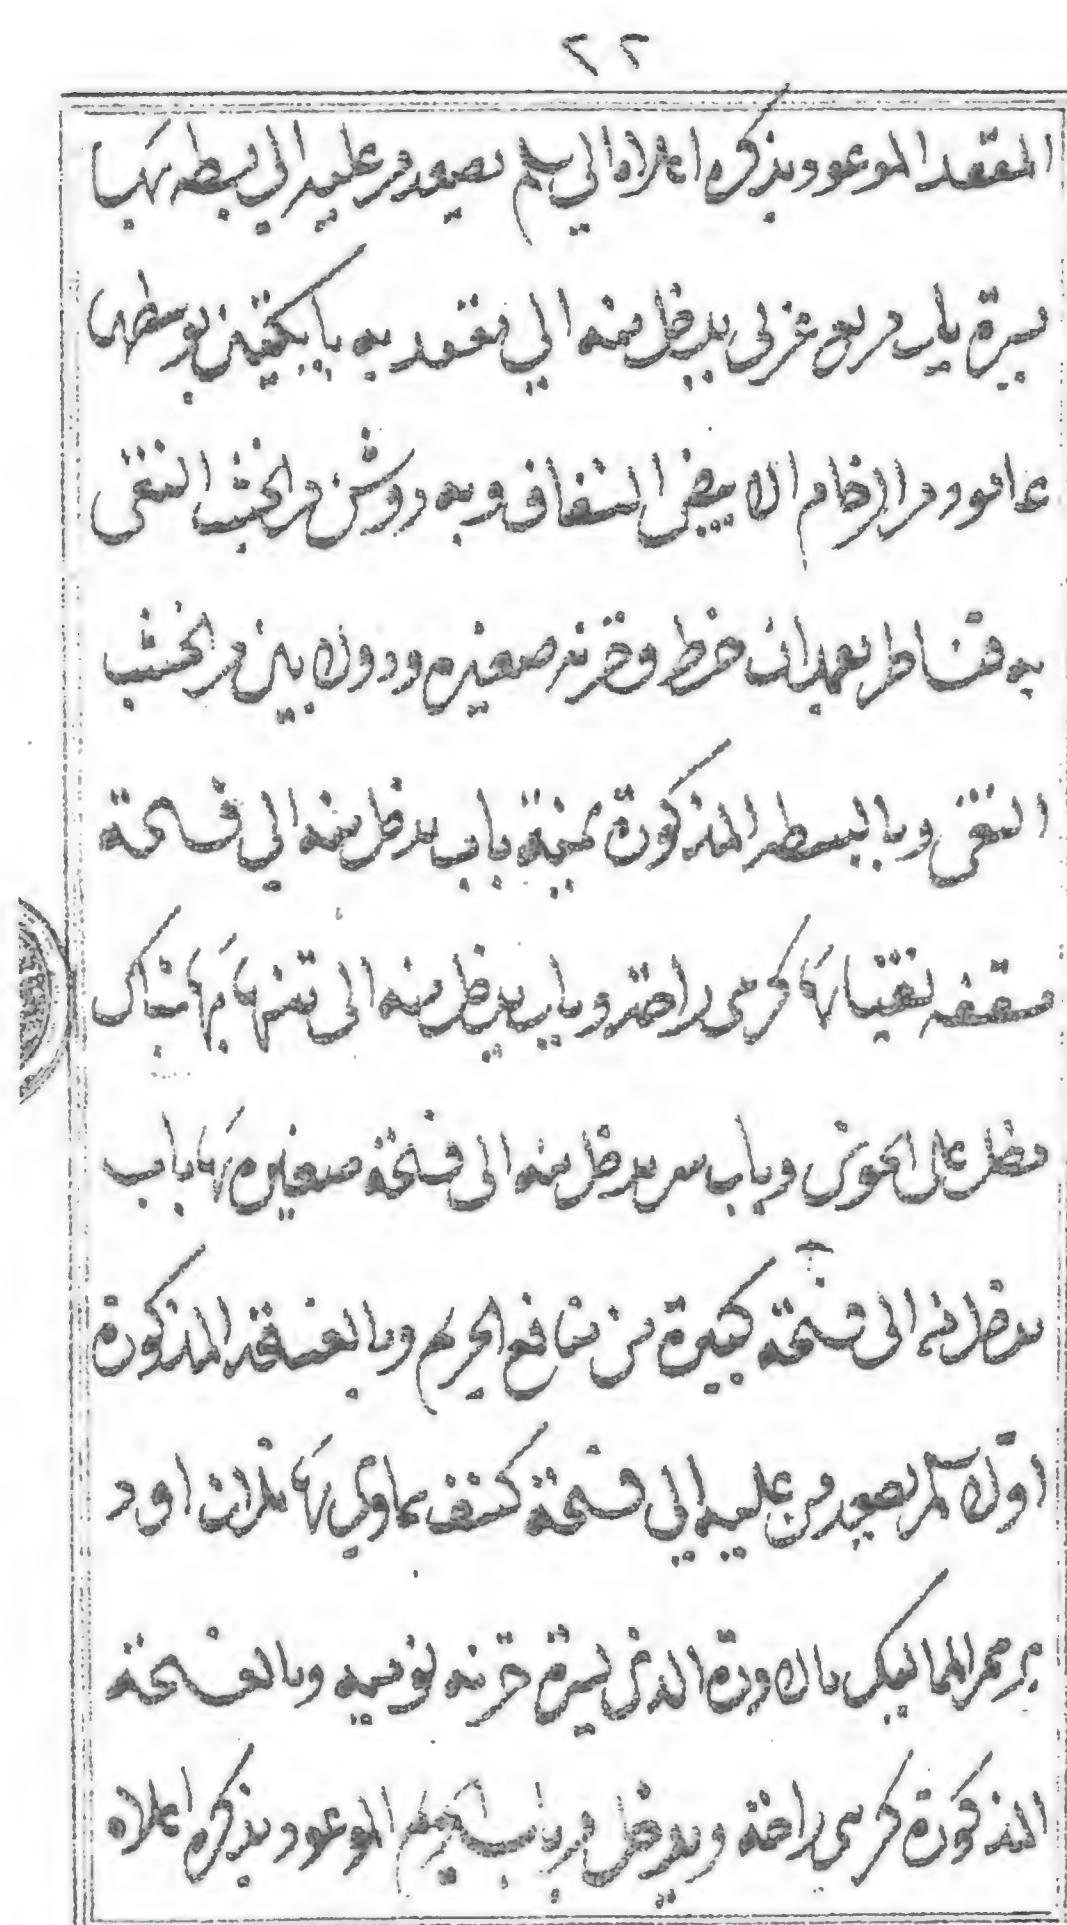 ٢٢
المقعد الموعود بذكره اعلاه الي سلم يصعد من عليه الي بسطه بها
يسرة باب مربع عربي يدخل منه الي مقعد به بايكتين بوسطهما
عامود من الرخام الابيض الشفاف وبه روشن من الخشب النقي
به قناطر بعمدان خرط وخزنه صغيره ودولابين من الخشب
النقي وبالبسطه المذكورة يمنة باب يدخل منه الي فسحة
مسقفه نقيا بها كرسي راحة وباب يدخل منه الى تنهه بها شباك
مطل على الحوش وباب سر يدخل منه الى فسحة صغيره بها باب
يدخل منه الى فسحة كبيرة من منافع الحريم وبالفسحة المذكورة
اولا سلم يصعد من عليه الي فسحة كشف سماوي بها ثلاث اود
برسم المماليك بالاودة الذي يسرة خزنه نوميه وبالفسحة
المذكورة كرسي راحة ويدخل من باب الحريم الموعود بذكره اعلاه